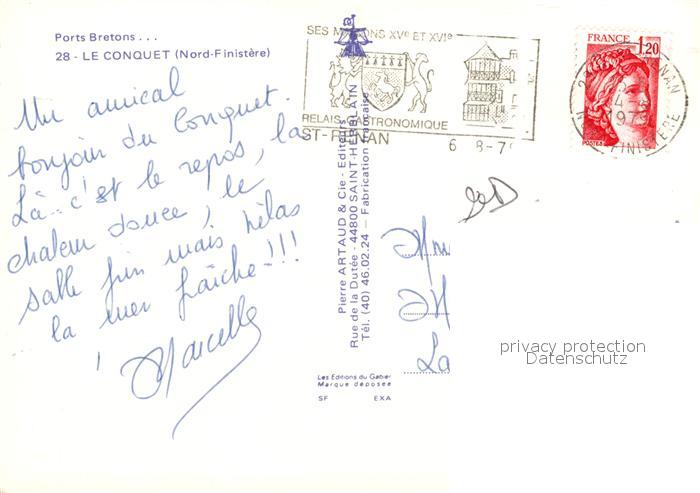 Ports Bretons...
28 - LE CONQUET (Nord-Finistère)
Un amical
bonjour du Conquet.
Là c'est le repos, la
chaleur douce, le
sable fin mais hélas
la mer fraîche!!!
Marcelle
SES MAISONS XVe ET XVIe
RELAIS GASTRONOMIQUE
ST-RENAN
6 8-7
Pierre ARTAUD & Cie - Editeurs
Rue de la Dutée - 44800 SAINT-HERBLAIN
Tél. (40) 46.02.24 - Fabrication française
Les Editions du Gabier
Marque déposée
SF EXA
FRANCE 1,20
POSTES
1979
FINISTERE
La
privacy protection
Datenschutz